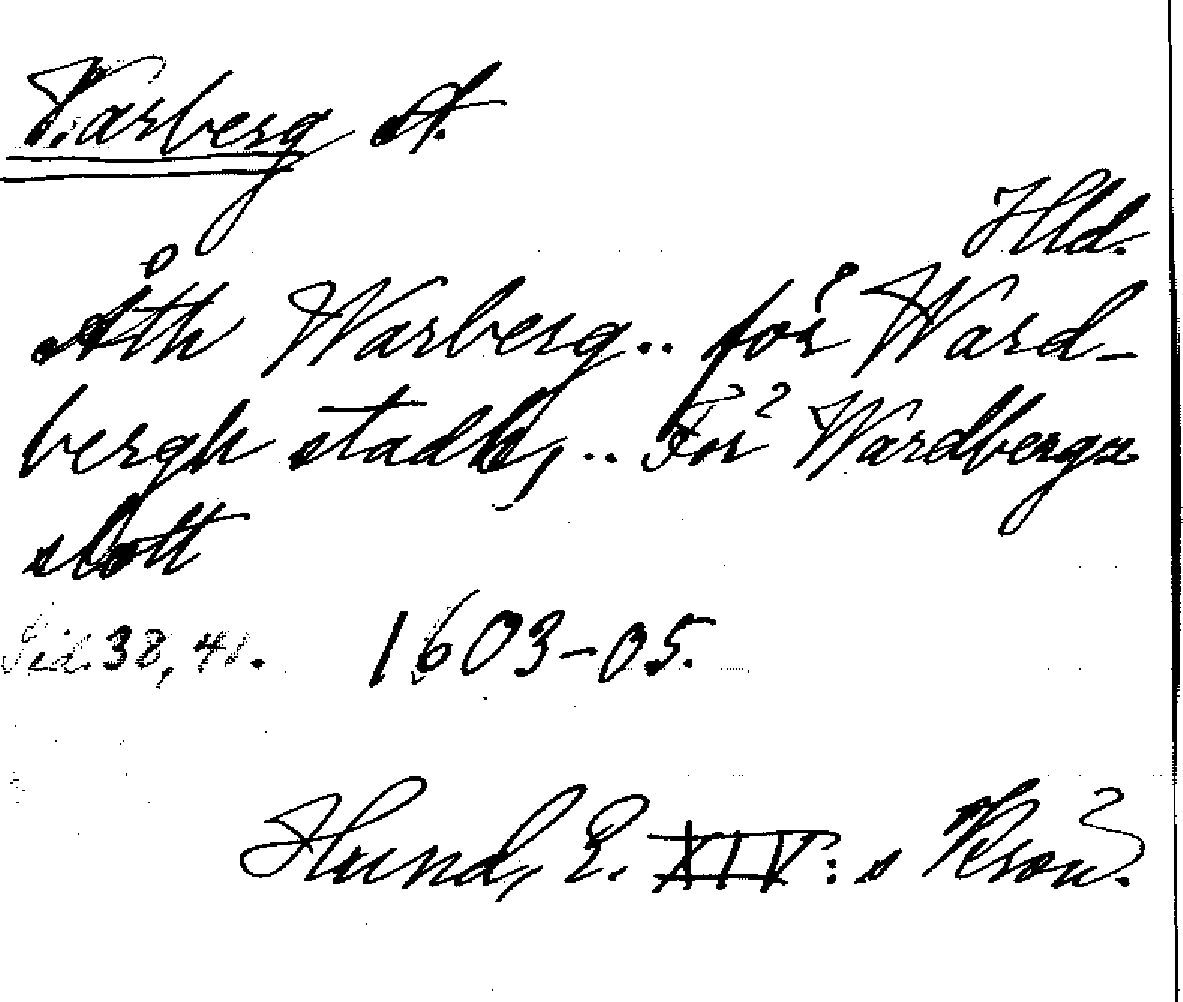 Varberg st.
Hld.
Åth Warberg.. för Ward-
bergh stadh,.. För Wardbergz
slott
Sid. 38, 41. 1603-05.
Hund, E. XIV:s Krön.